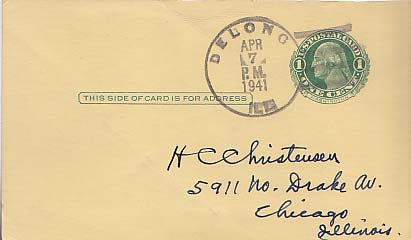 DELONG
APR
7
P.M.
1941
ILL.
U.S. POSTAL CARD
1 1
ONE CENT
THIS SIDE OF CARD IS FOR ADDRESS
H C Christensen
5911 No. Drake Av.
Chicago
Illinois.